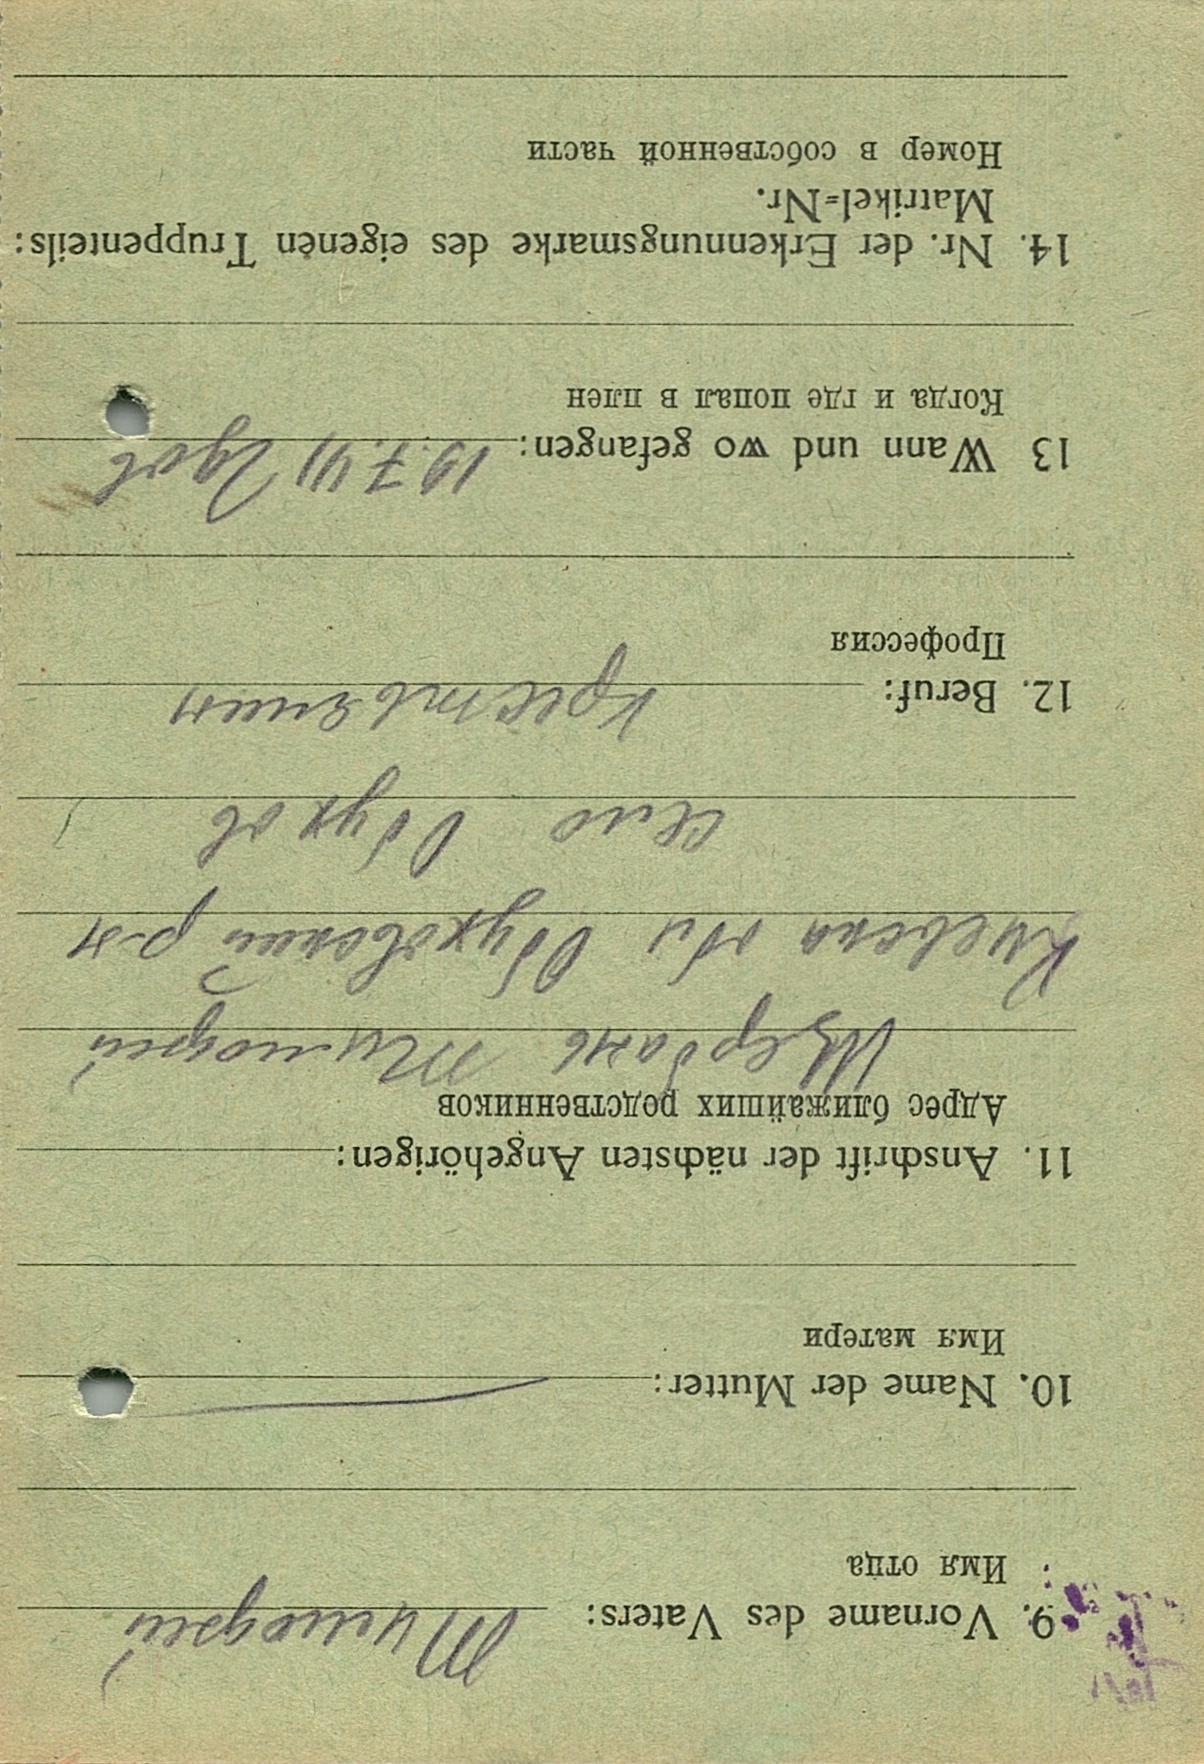 9. Vorname des Vaters: Тимофей
Имя отца
10. Name der Mutter:
Имя матери
11. Anschrift der nächsten Angehörigen:
Адрес ближайших родственников
Щербань Тимофей
Киевска обл Обуховский р-н
село Обухов
12. Beruf: крестьянин
Профессия
13 Wann und wo gefangen: 19.7.41
Когда и где попал в плен
14. Nr. der Erkennungsmarke des eigenen Truppenteils:
Matrikel=Nr.
Номер в собственной части